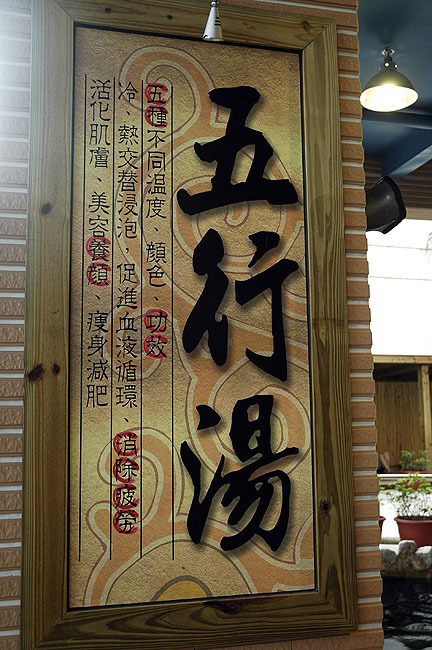 五行湯
五種不同溫度、顏色、功效
冷、熱交替浸泡、促進血液循環、消除疲勞
活化肌膚、美容養顏、瘦身減肥